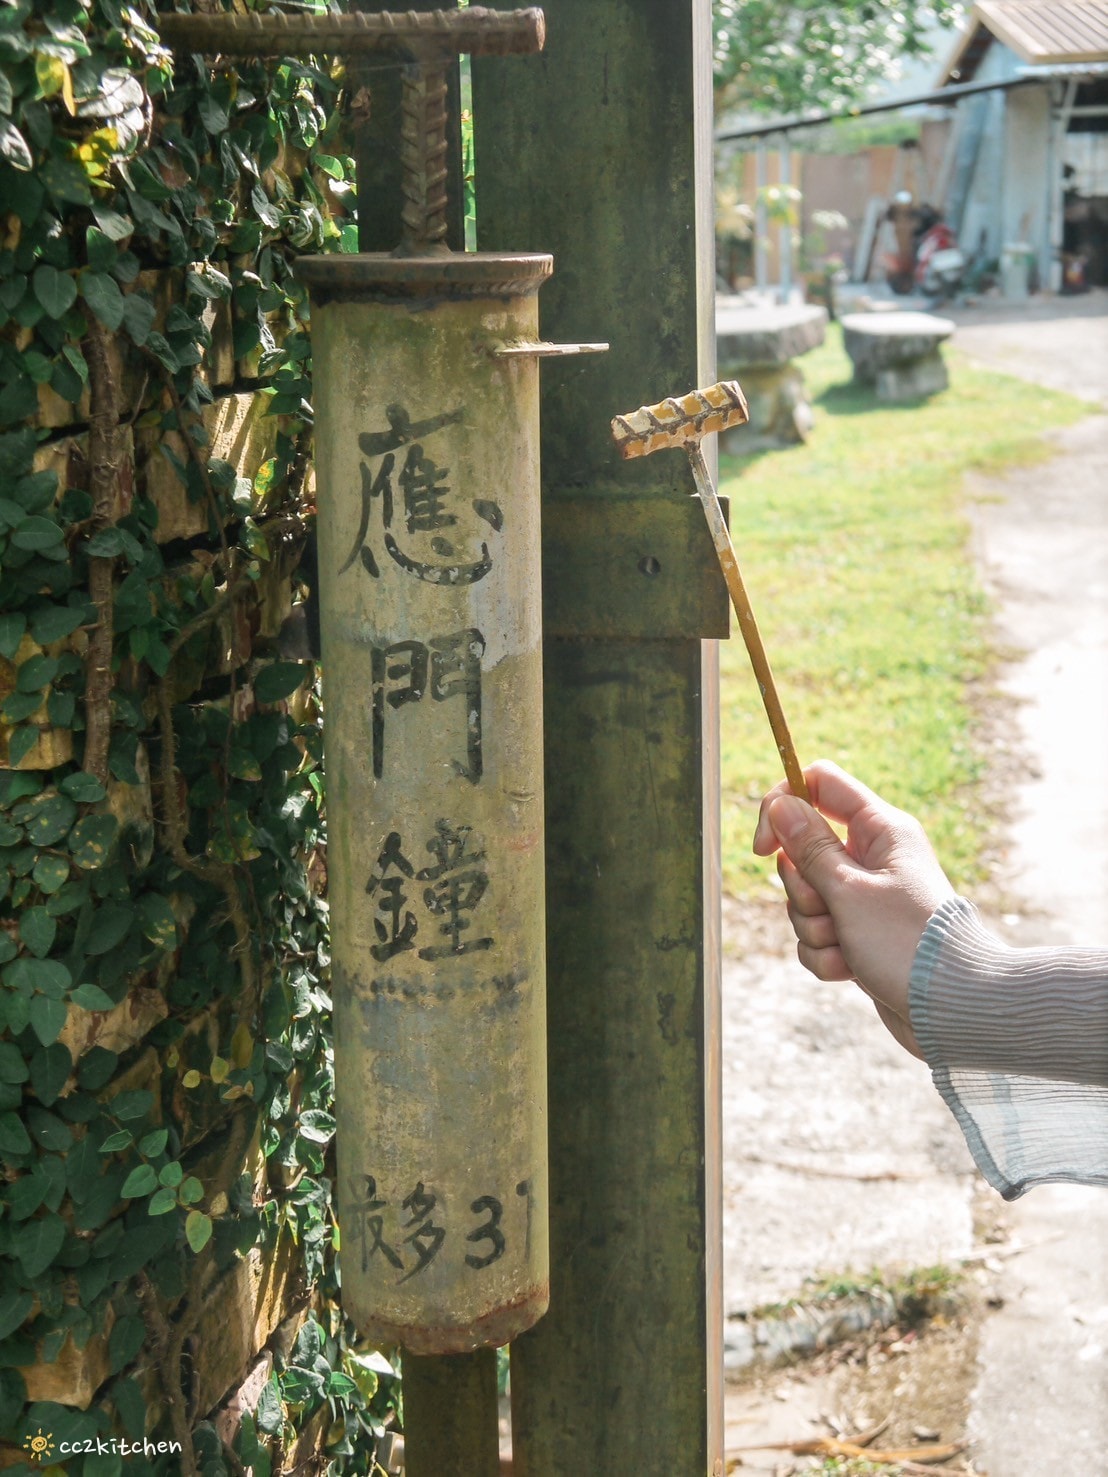 應門鐘
最多3
cc2kitchen